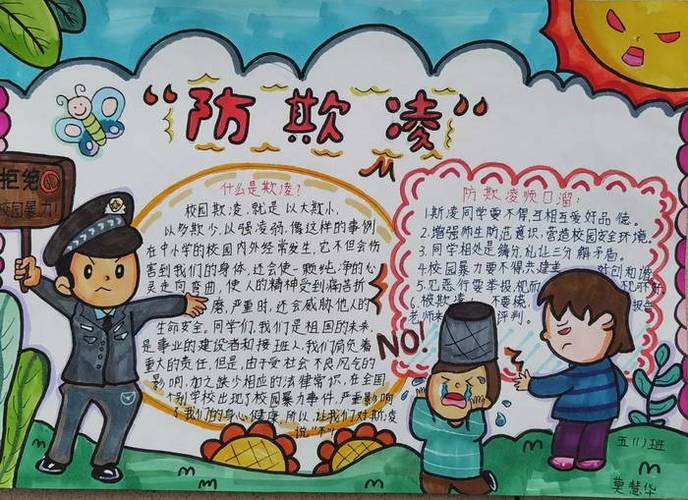 “防欺凌”
拒绝
校园暴力!
什么是欺凌?
校园欺凌,就是以大欺小,
以多欺少,以强凌弱,像这样的事例
在中小学的校园内外经常发生,它不但会伤
害到我们的身体,还会使一颗纯净的心
灵走向弯曲,使人的精神受到痛苦折
磨,严重时,还会威胁他人的
生命安全。同学们,我们是祖国的未来,
是事业的建设者和接班人,我们肩负着
重大的责任,但是,由于受社会不良风气的
影响,加之缺少相应的法律常识,在全国
个别学校出现了校园暴力事件,严重影响
了我们的身心健康,所以,让我们对欺凌
说“不”!
防欺凌顺口溜:
1.欺凌同学要不得,互相互爱好品德。
2.增强师生防范意识,营造校园安全环境。
3.同学相处是缘分,礼让三分解矛盾。
4.校园暴力要不得,共建
创和谐
5.见恶行要举报,
6.被欺凌
报告
老师
评判。
NO!
五(1)班
莫慧华